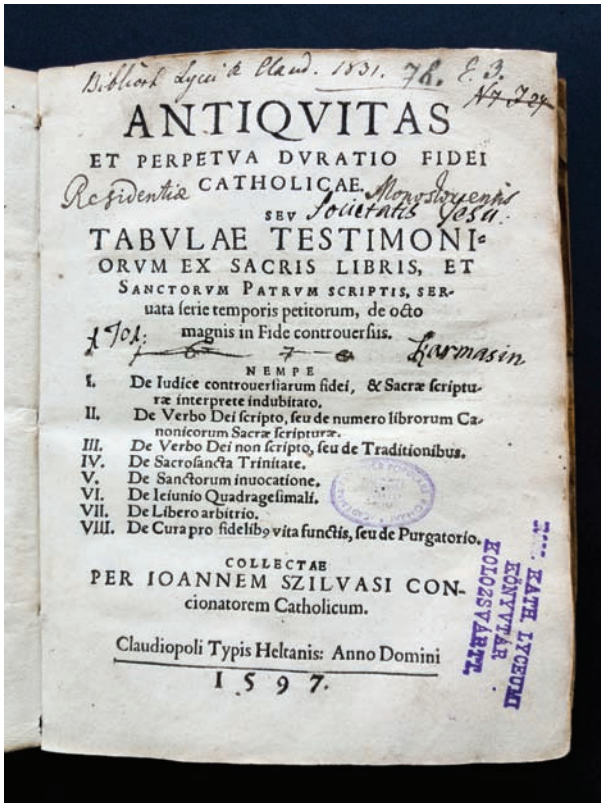 Biblioth Lycei Claud. 1831. E. 3.
ANTIQVITAS
ET PERPETVA DVRATIO FIDEI
CATHOLICAE.
Residentiæ Monostoriensis
SEV Societatis Jesu:
TABVLAE TESTIMONI-
ORVM EX SACRIS LIBRIS, ET
SANCTORVM PATRVM SCRIPTIS, SER-
uata ſerie temporis petitorum, de octo
magnis in Fide controuerſiis.
NEMPE
I. De Iudice controuerſiarum fidei, & Sacræ ſcriptu-
ræ interprete indubitato.
II. De Verbo Dei ſcripto, ſeu de numero librorum Ca-
nonicorum Sacræ ſcripturæ.
III. De Verbo Dei non ſcripto, ſeu de Traditionibus.
IV. De Sacroſancta Trinitate.
V. De Sanctorum inuocatione.
VI. De Ieiunio Quadrageſimali.
VII. De Libero arbitrio.
VIII. De Cura pro fidelibꝯ vita functis, ſeu de Purgatorio.
COLLECTAE
PER IOANNEM SZILVASI CON-
cionatorem Catholicum.
Claudiopoli Typis Heltanis: Anno Domini
1597.
KATH. LYCEUMI
KÖNYVTÁR
KOLOZSVÁRTT.